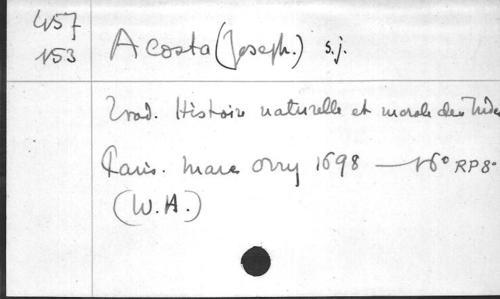 457
153
Acosta (Joseph.) s.j.
Trad. Histoire naturelle et morale des Indes
Paris. Marc Orry 1698 — 16° RP8°
(W.A.)